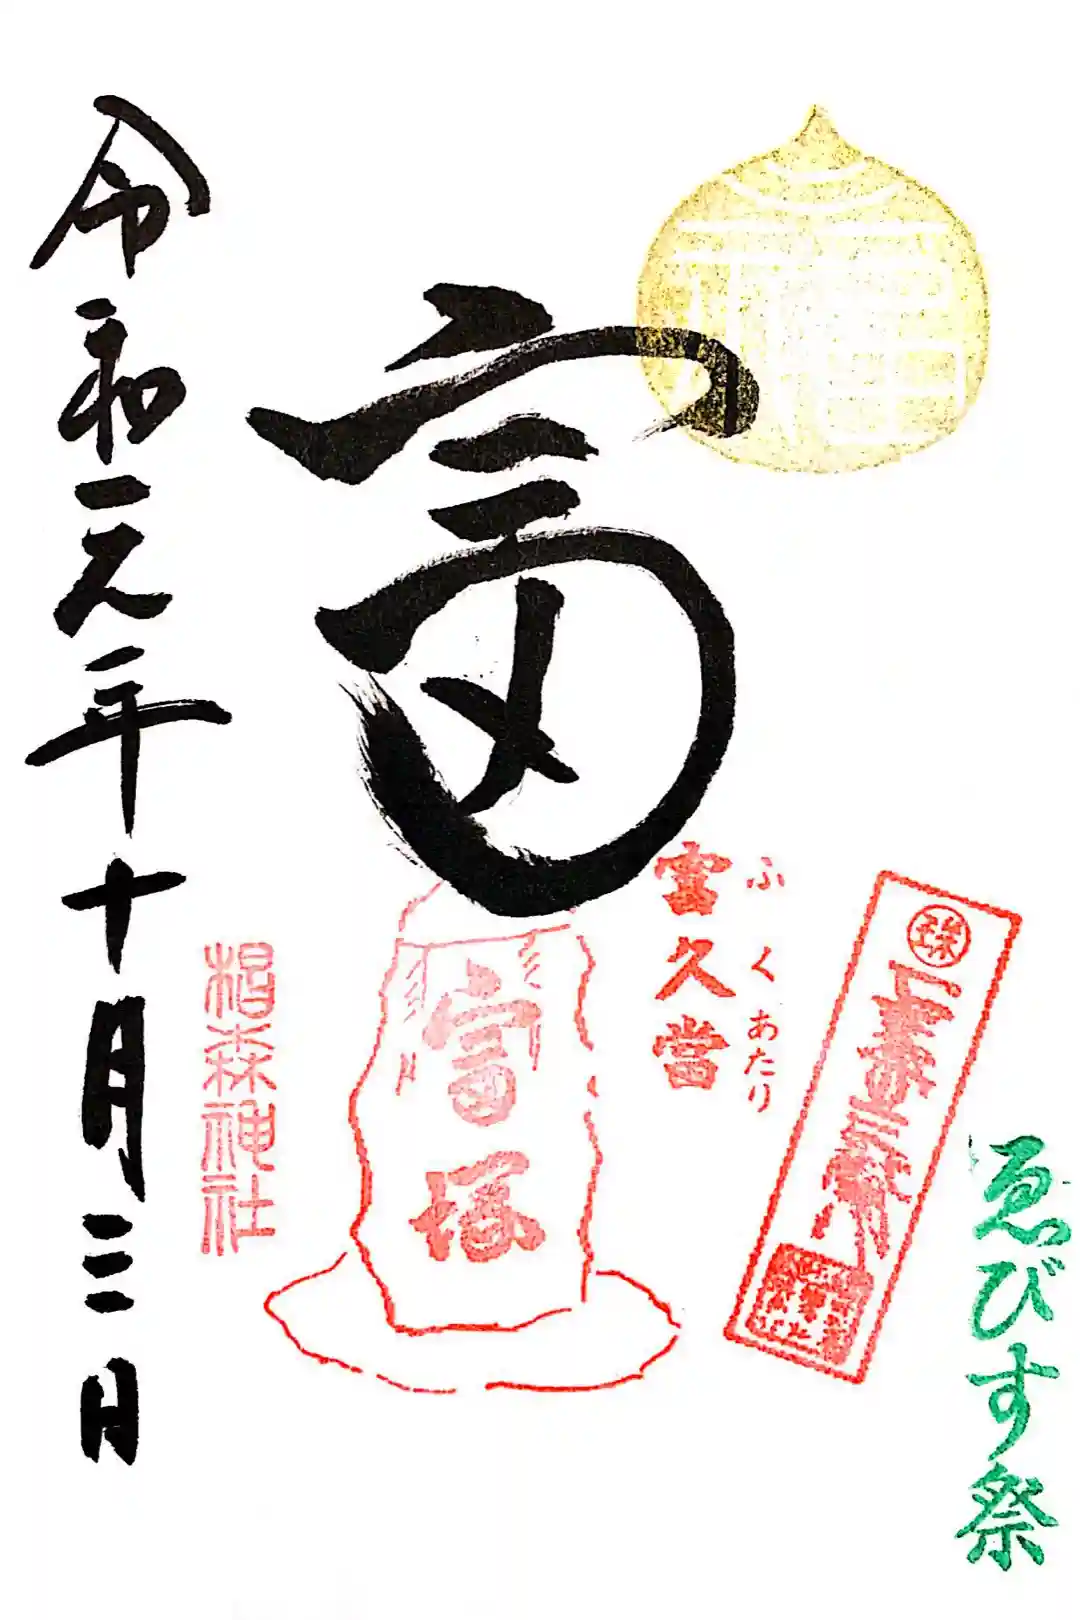 ゑびす祭
福
珠
富久當
ふくあたり
富
富塚
椙森神社
令和元年十月三日